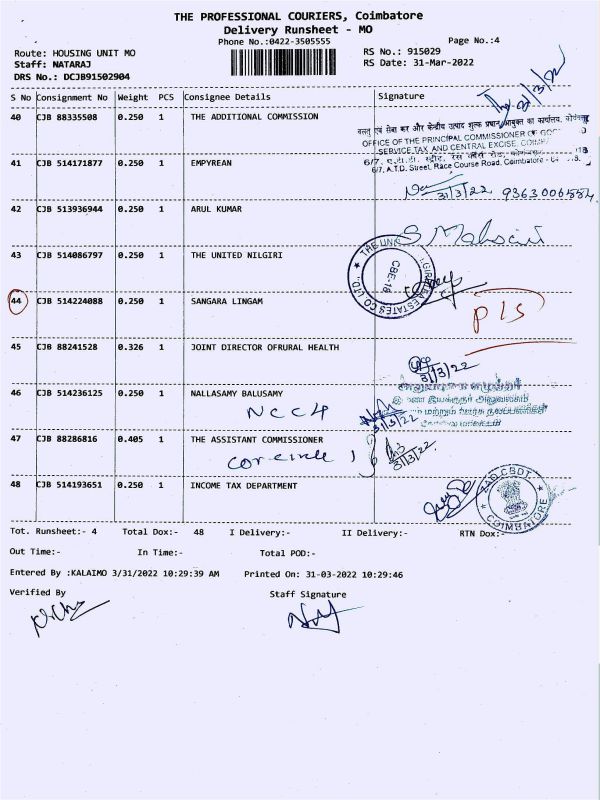 THE PROFESSIONAL COURIERS, Coimbatore
Delivery Runsheet - MO
Phone No.:0422-3505555
Page No.:4
Route: HOUSING UNIT MO
RS No.: 915029
Staff: NATARAJ
RS Date: 31-Mar-2022
DRS No.: DCJB91502904
S No Consignment No Weight PCS Consignee Details Signature
40 CJB 88335508 0.250 1 THE ADDITIONAL COMMISSION
वस्तु एवं सेवा कर और केन्द्रीय उत्पाद शुल्क प्रधान आयुक्त का कार्यालय,
OFFICE OF THE PRINCIPAL COMMISSIONER OF
SERVICE TAX AND CENTRAL EXCISE,
6/7, ए.टी.डी. स्ट्रीट, रेस कोर्स रोड,
6/7, A.T.D. Street, Race Course Road, Coimbatore -
41 CJB 514171877 0.250 1 EMPYREAN
31/3/22 9363006584
42 CJB 513936944 0.250 1 ARUL KUMAR
43 CJB 514086797 0.250 1 THE UNITED NILGIRI
THE UNITED NILGIRI TEA ESTATES CO LTD
CBE-18
44 CJB 514224088 0.250 1 SANGARA LINGAM
Pls
45 CJB 88241528 0.326 1 JOINT DIRECTOR OFRURAL HEALTH
31/3/22
46 CJB 514236125 0.250 1 NALLASAMY BALUSAMY
NCC4
31/3/22
47 CJB 88286816 0.405 1 THE ASSISTANT COMMISSIONER
31/3/22
48 CJB 514193651 0.250 1 INCOME TAX DEPARTMENT
COIMBATORE
Tot. Runsheet:- 4 Total Dox:- 48 I Delivery:- II Delivery:- RTN Dox:-
Out Time:- In Time:- Total POD:-
Entered By :KALAIMO 3/31/2022 10:29:39 AM Printed On: 31-03-2022 10:29:46
Verified By Staff Signature